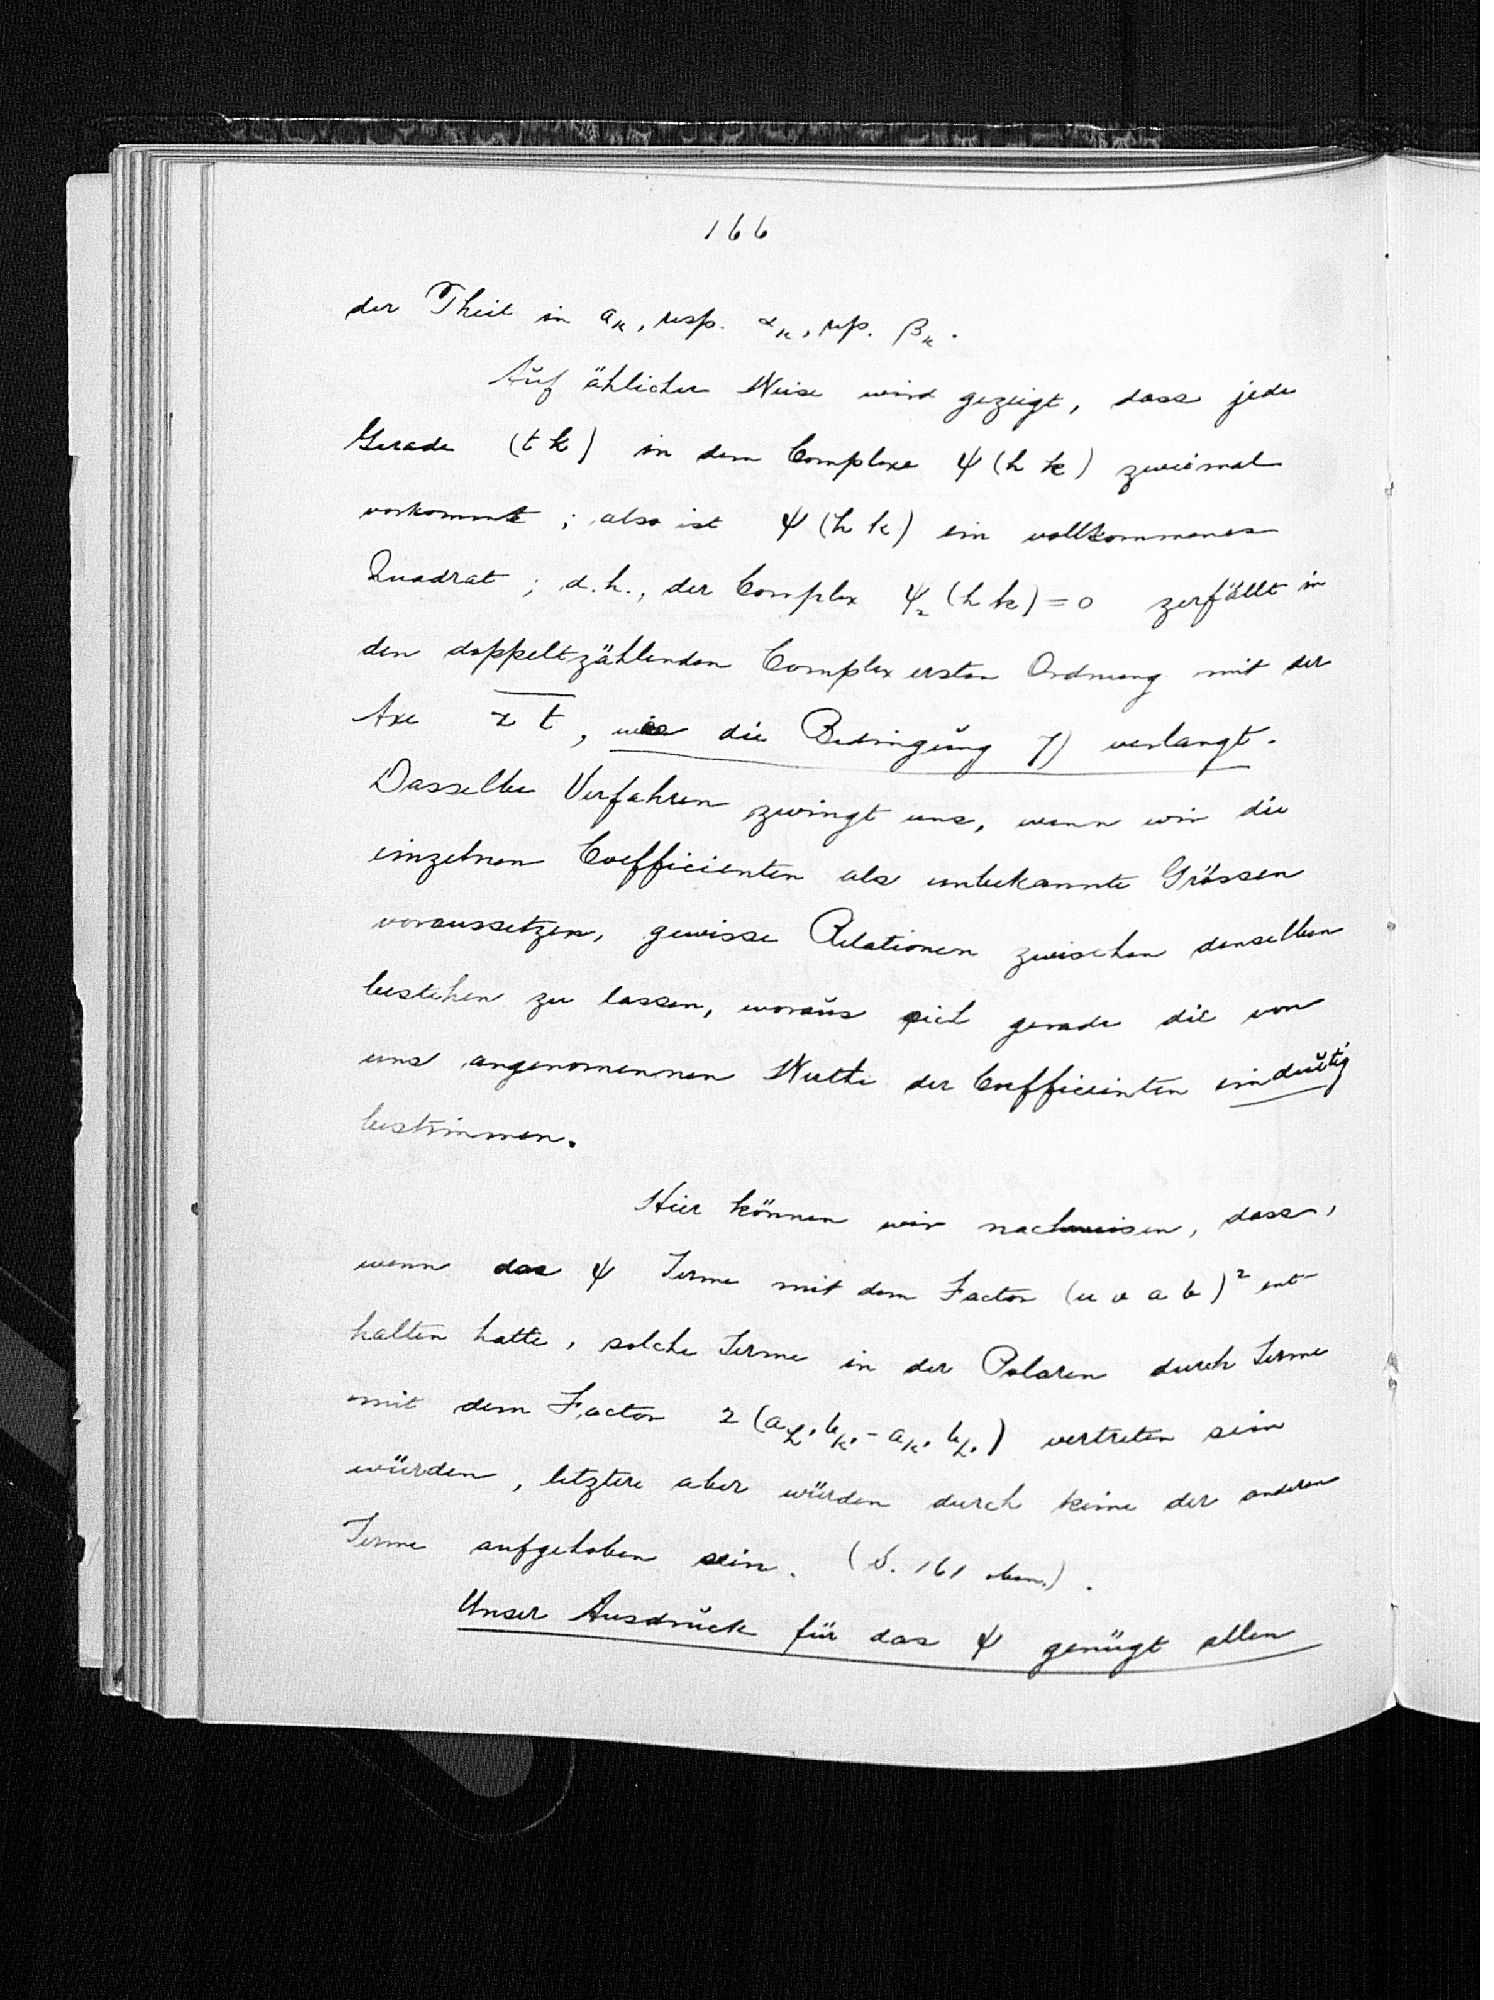 166
der Theil in a_k, resp. α_k, resp. β_k.
Auf ählicher Weise wird gezeigt, dass jede
Gerade (t k) in dem Complexe ψ(h k) zweimal
vorkommt; also ist ψ(h k) ein vollkommenes
Quadrat; d.h., der Complex ψ₂(h k)=0 zerfällt in
den doppeltzählenden Complex ersten Ordnung mit der
Axe z t, wie die Bedingung 7) verlangt.
Dasselbe Verfahren zwingt uns, wenn wir die
einzelnen Coefficienten als unbekannte Grössen
voraussetzen, gewisse Relationen zwischen denselben
bestehen zu lassen, woraus sich gerade die von
uns angenomennen Werthe der Coefficienten eindeutig
bestimmen.
Hier können wir nachweisen, dass,
wenn das ψ Terme mit dem Factor (u v a b)² ent-
halten hätte, solche Terme in der Polaren durch Terme
mit dem Factor 2(a_h' b_k' - a_k' b_h') vertreten sein
würden, letztere aber würden durch keine der anderen
Terme aufgehoben sein. (S. 161 oben.).
Unser Ausdruck für das ψ genügt allen